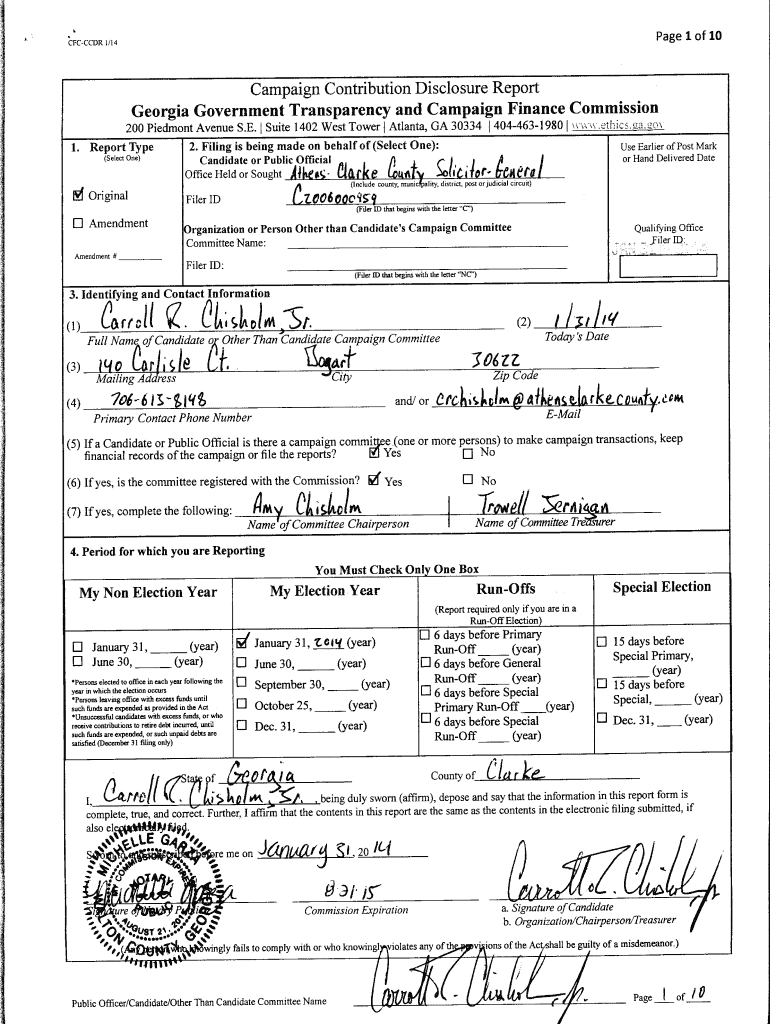 CFC-CCDR 1/14
Page 1 of 10
Campaign Contribution Disclosure Report
Georgia Government Transparency and Campaign Finance Commission
200 Piedmont Avenue S.E. | Suite 1402 West Tower | Atlanta, GA 30334 | 404-463-1980 | www.ethics.ga.gov
1. Report Type
(Select One)
☑ Original
☐ Amendment
Amendment # ________
2. Filing is being made on behalf of (Select One):
Candidate or Public Official
Office Held or Sought Athens-Clarke County Solicitor-General
(Include county, municipality, district, post or judicial circuit)
Filer ID C2006000959
(Filer ID that begins with the letter "C")
Organization or Person Other than Candidate's Campaign Committee
Committee Name:
Filer ID:
(Filer ID that begins with the letter "NC")
Use Earlier of Post Mark
or Hand Delivered Date
Qualifying Office
Filer ID:
3. Identifying and Contact Information
(1) Carroll R. Chisholm, Jr. (2) 1/31/14
Full Name of Candidate or Other Than Candidate Campaign Committee Today's Date
(3) 140 Carlisle Ct. Bogart 30622
Mailing Address City Zip Code
(4) 706-613-8148 and/ or crchisholm@athensclarkecounty.com
Primary Contact Phone Number E-Mail
(5) If a Candidate or Public Official is there a campaign committee (one or more persons) to make campaign transactions, keep
financial records of the campaign or file the reports? ☑ Yes ☐ No
(6) If yes, is the committee registered with the Commission? ☑ Yes ☐ No
(7) If yes, complete the following: Amy Chisholm Trowell Jernigan
Name of Committee Chairperson Name of Committee Treasurer
4. Period for which you are Reporting
You Must Check Only One Box
My Non Election Year
☐ January 31, ______ (year)
☐ June 30, ______ (year)
*Persons elected to office in each year following the
year in which the election occurs
*Persons leaving office with excess funds until
such funds are expended as provided in the Act
*Unsuccessful candidates with excess funds, or who
receive contributions to retire debt incurred, until
such funds are expended, or such unpaid debts are
satisfied (December 31 filing only)
My Election Year
☑ January 31, 2014 (year)
☐ June 30, _____ (year)
☐ September 30, _____ (year)
☐ October 25, _____ (year)
☐ Dec. 31, _____ (year)
Run-Offs
(Report required only if you are in a
Run-Off Election)
☐ 6 days before Primary
Run-Off _____ (year)
☐ 6 days before General
Run-Off _____ (year)
☐ 6 days before Special
Primary Run-Off ____(year)
☐ 6 days before Special
Run-Off _____ (year)
Special Election
☐ 15 days before
Special Primary,
______ (year)
☐ 15 days before
Special, ______ (year)
☐ Dec. 31, ____ (year)
State of Georgia County of Clarke
I, Carroll R. Chisholm, Jr. , being duly sworn (affirm), depose and say that the information in this report form is
complete, true, and correct. Further, I affirm that the contents in this report are the same as the contents in the electronic filing submitted, if
also electronically filed.
before me on January 31, 2014
MICHELLE GARZA
COMMISSION EXPIRES
NOTARY
PUBLIC
AUGUST 21,
COUNTY GEOR
Signature of Notary Public
8 31 15
Commission Expiration
Carroll R. Chisholm Jr.
a. Signature of Candidate
b. Organization/Chairperson/Treasurer
(Any person who knowingly fails to comply with or who knowingly violates any of the provisions of the Act shall be guilty of a misdemeanor.)
Public Officer/Candidate/Other Than Candidate Committee Name Carroll R. Chisholm Jr. Page 1 of 10